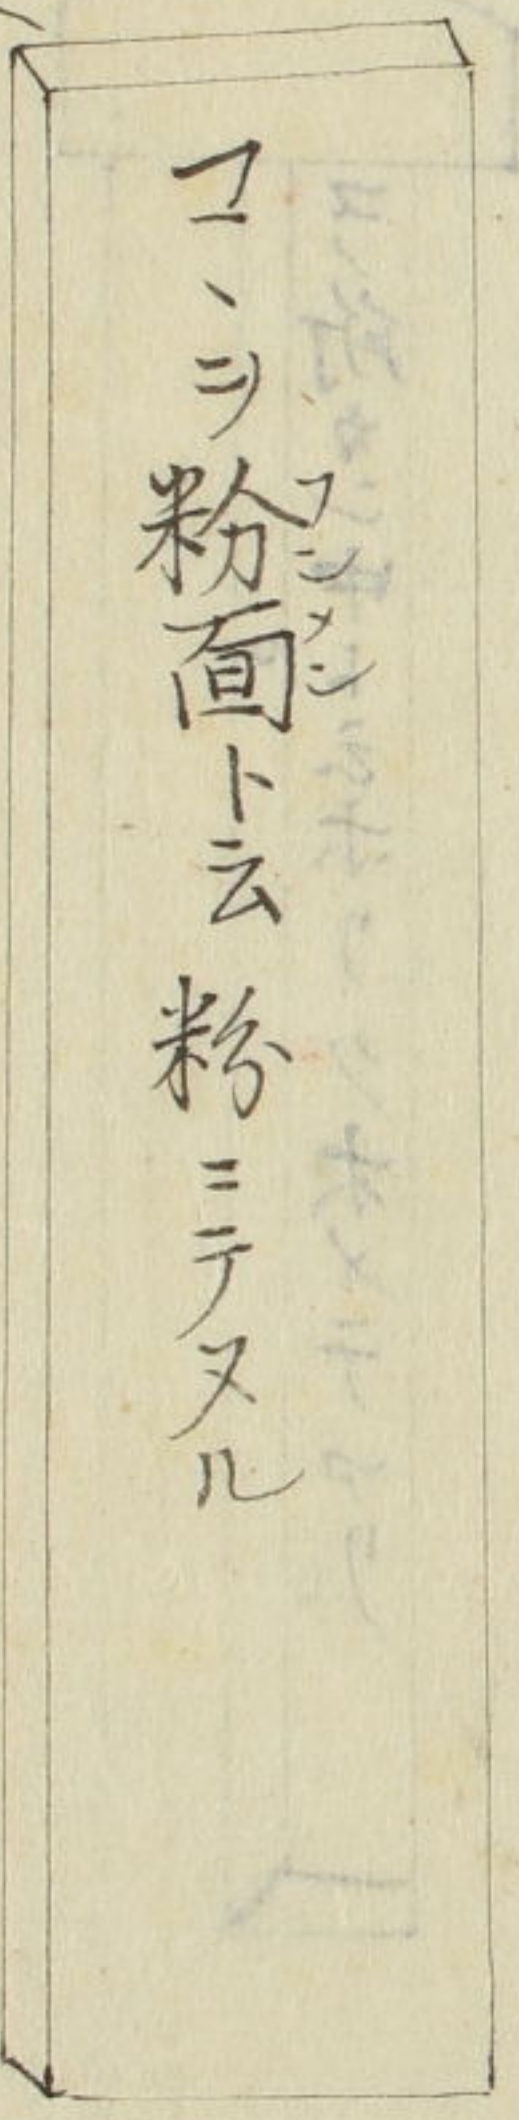 コヽヲ粉面(フンメン)ト云 粉ニテヌル